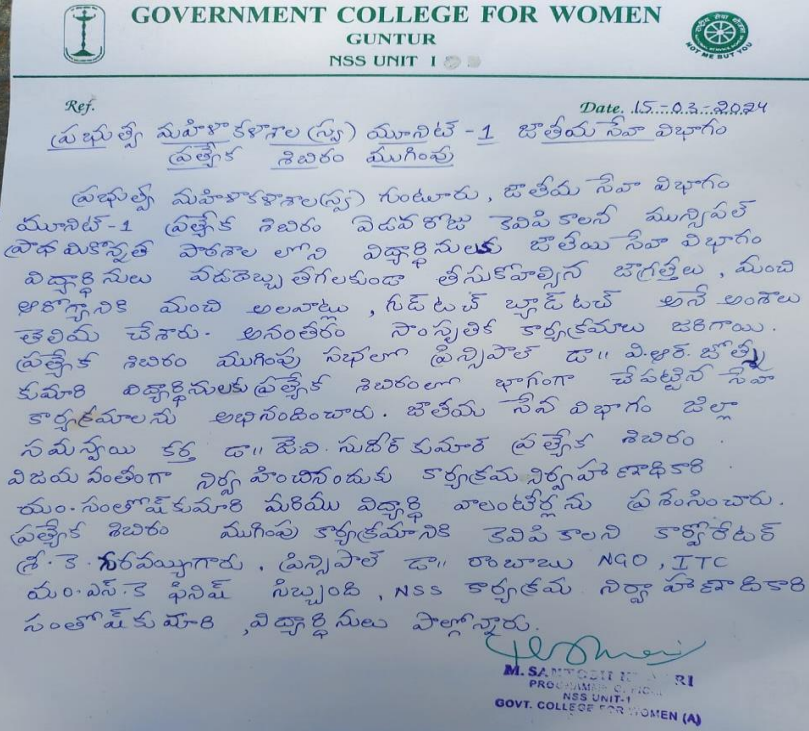 GOVERNMENT COLLEGE FOR WOMEN
GUNTUR
NSS UNIT I
NOT ME BUT YOU
Ref.
Date. 15-03-2024
ప్రభుత్వ మహిళా కళాశాల (స్వ) యూనిట్ -1 జాతీయ సేవా విభాగం
ప్రత్యేక శిబిరం ముగింపు
ప్రభుత్వ మహిళాకళాశాల(స్వ) గుంటూరు, జాతీయ సేవా విభాగం
యూనిట్-1 ప్రత్యేక శిబిరం ఏడవ రోజు కెవిపి కాలనీ మున్సిపల్
ప్రాథమికోన్నత పాఠశాల లోని విద్యార్థినులకు జాతీయ సేవా విభాగం
విద్యార్థినులు వడదెబ్బ తగలకుండా తీసుకోవాల్సిన జాగ్రత్తలు, మంచి
ఆరోగ్యానికి మంచి అలవాట్లు, గుడ్ టచ్ బ్యాడ్ టచ్ అనే అంశాలు
తెలియ చేశారు. అనంతరం సాంస్కృతిక కార్యక్రమాలు జరిగాయి.
ప్రత్యేక శిబిరం ముగింపు సభలో ప్రిన్సిపాల్ డా॥ వి.ఆర్. జ్యోత్స్న
కుమారి విద్యార్థినులకు ప్రత్యేక శిబిరంలో భాగంగా చేపట్టిన సేవా
కార్యక్రమాలను అభినందించారు. జాతీయ సేవ విభాగం జిల్లా
సమన్వయ కర్త డా॥ జెవి. సుధీర్ కుమార్ ప్రత్యేక శిబిరం.
విజయవంతంగా నిర్వహించినందుకు కార్యక్రమ నిర్వహణాధికారి
యం. సంతోష్ కుమారి మరియు విద్యార్థి వాలంటీర్లను ప్రశంసించారు.
ప్రత్యేక శిబిరం ముగింపు కార్యక్రమానికి కెవిపి కాలని కార్పోరేటర్
శ్రీ. కె. గురవయ్యగారు, ప్రిన్సిపాల్ డా॥ రాంబాబు NGO, ITC
యం.ఎస్.కె ఫినిష్ సిబ్బంది, NSS కార్యక్రమ నిర్వాహణాదికారి
సంతోష్ కుమారి, విద్యార్థినులు పాల్గొన్నారు.
M. SANTOSH KUMARI
PROGRAMME OFFICER
NSS UNIT-1
GOVT. COLLEGE FOR WOMEN (A)